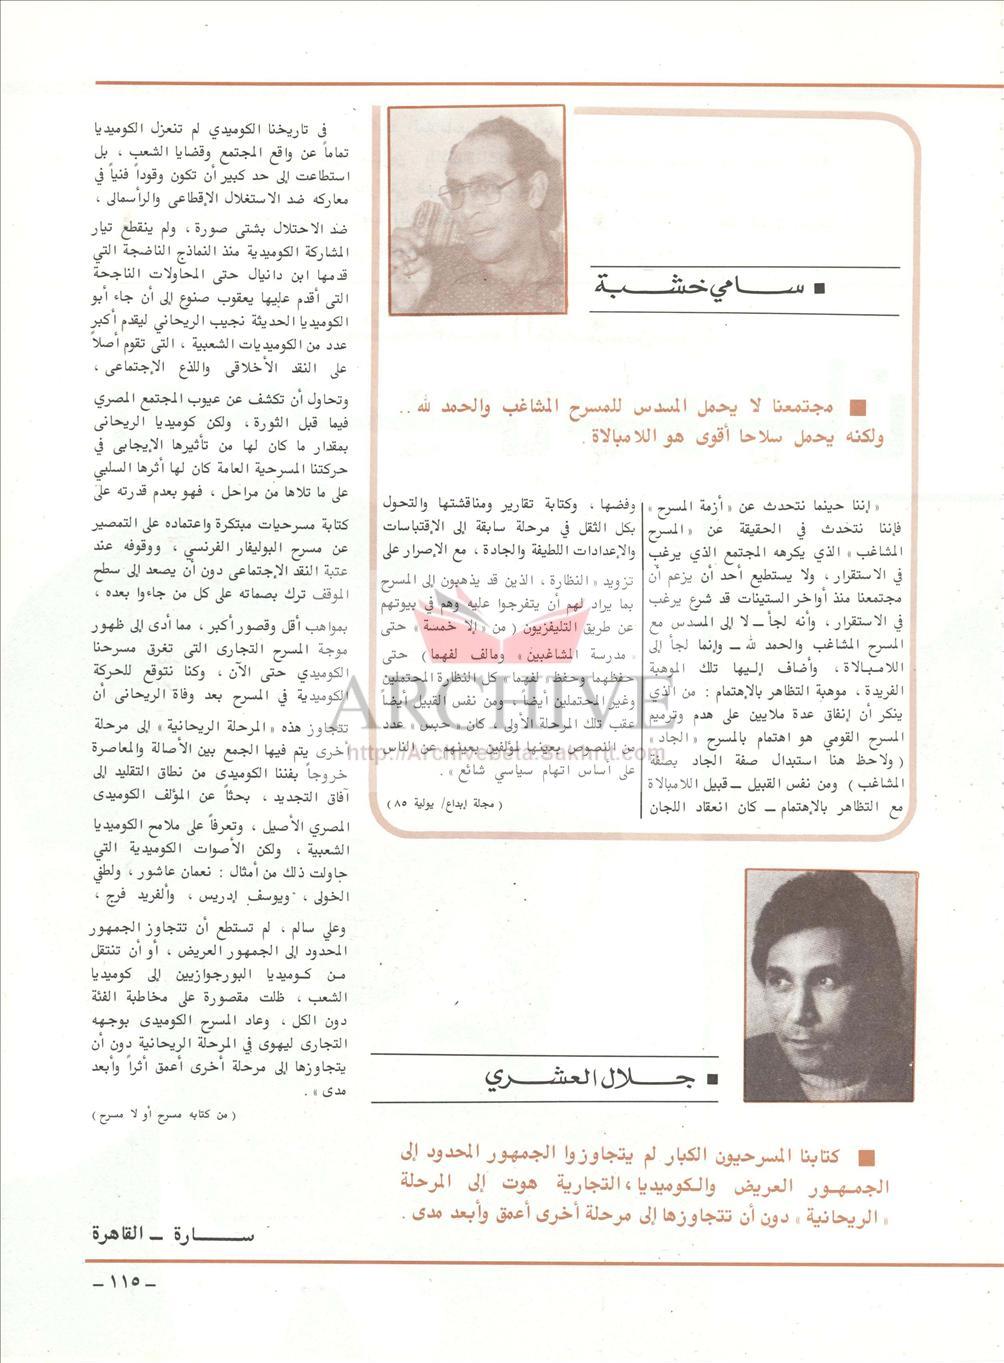 ■ سامي خشبة
■ مجتمعنا لا يحمل المسدس للمسرح المشاغب والحمد لله ..
ولكنه يحمل سلاحا أقوى هو اللامبالاة .
« إننا حينما نتحدث عن « أزمة المسرح »
فإننا نتحدث في الحقيقة عن « المسرح
المشاغب » الذي يكرهه المجتمع الذي يرغب
في الاستقرار ، ولا يستطيع أحد أن يزعم أن
مجتمعنا منذ أواخر الستينات قد شرع يرغب
في الاستقرار ، وأنه لجأ ــ لا إلى المسدس مع
المسرح المشاغب والحمد لله ــ وإنما لجأ إلى
اللامبالاة ، وأضاف إليها تلك الموهبة
الفريدة ، موهبة التظاهر بالإهتمام : من الذي
ينكر أن إنفاق عدة ملايين على هدم وترميم
المسرح القومي هو اهتمام بالمسرح « الجاد »
( ولاحظ هنا استبدال صفة الجاد بصفة
المشاغب ) ومن نفس القبيل ــ قبيل اللامبالاة
مع التظاهر بالإهتمام ــ كان انعقاد اللجان
وفضها ، وكتابة تقارير ومناقشتها والتحول
بكل الثقل في مرحلة سابقة إلى الإقتباسات
والإعدادات اللطيفة والجادة ، مع الإصرار على
تزويد « النظارة ، الذين قد يذهبون إلى المسرح
بما يراد لهم أن يتفرجوا عليه وهم في بيوتهم
عن طريق التليفزيون ( من « إلا خمسة » حتى
« مدرسة المشاغبين » ومالف لفهما ) حتى
حفظهما وحفظ لفهما « كل النظارة المحتملين
وغير المحتملين أيضاً ــ ومن نفس القبيل أيضاً
عقب تلك المرحلة الأولى ، كان « حبس » عدد
من النصوص بعينها لمؤلفين بعينهم عن الناس
على أساس اتهام سياسي شائع » .
( مجلة إبداع/ يولية ٨٥ )
■ جلال العشري
■ كتابنا المسرحيون الكبار لم يتجاوزوا الجمهور المحدود إلى
الجمهور العريض والكوميديا ، التجارية هوت إلى المرحلة
« الريحانية » دون أن تتجاوزها إلى مرحلة أخرى أعمق وأبعد مدى .
فى تاريخنا الكوميدي لم تنعزل الكوميديا
تماماً عن واقع المجتمع وقضايا الشعب ، بل
استطاعت إلى حد كبير أن تكون وقوداً فنياً في
معاركه ضد الاستغلال الإقطاعى والرأسمالى ،
ضد الاحتلال بشتى صورة ، ولم ينقطع تيار
المشاركة الكوميدية منذ النماذج الناضجة التي
قدمها ابن دانيال حتى المحاولات الناجحة
التى أقدم عليها يعقوب صنوع إلى أن جاء أبو
الكوميديا الحديثة نجيب الريحاني ليقدم أكبر
عدد من الكوميديات الشعبية ، التى تقوم أصلاً
على النقد الأخلاقى واللذع الإجتماعى ،
وتحاول أن تكشف عن عيوب المجتمع المصري
فيما قبل الثورة ، ولكن كوميديا الريحانى
بمقدار ما كان لها من تأثيرها الإيجابى في
حركتنا المسرحية العامة كان لها أثرها السلبي
على ما تلاها من مراحل ، فهو بعدم قدرته على
كتابة مسرحيات مبتكرة واعتماده على التمصير
عن مسرح البوليفار الفرنسي ، ووقوفه عند
عتبة النقد الإجتماعى دون أن يصعد إلى سطح
الموقف ترك بصماته على كل من جاءوا بعده ،
بمواهب أقل وقصور أكبر ، مما أدى إلى ظهور
موجة المسرح التجارى التى تغرق مسرحنا
الكوميدي حتى الآن ، وكنا نتوقع للحركة
الكوميدية في المسرح بعد وفاة الريحانى أن
تتجاوز هذه « المرحلة الريحانية » إلى مرحلة
أخرى يتم فيها الجمع بين الأصالة والمعاصرة
خروجاً بفننا الكوميدى من نطاق التقليد إلى
آفاق التجديد ، بحثاً عن المؤلف الكوميدى
المصري الأصيل ، وتعرفاً على ملامح الكوميديا
الشعبية ، ولكن الأصوات الكوميدية التي
حاولت ذلك من أمثال : نعمان عاشور ، ولطفي
الخولى ، ويوسف إدريس ، والفريد فرج ،
وعلي سالم ، لم تستطع أن تتجاوز الجمهور
المحدود إلى الجمهور العريض ، أو أن تنتقل
من كوميديا البورجوازيين إلى كوميديا
الشعب ، ظلت مقصورة على مخاطبة الفئة
دون الكل ، وعاد المسرح الكوميدى بوجهه
التجارى ليهوى في المرحلة الريحانية دون أن
يتجاوزها إلى مرحلة أخرى أعمق أثراً وأبعد
مدى » .
( من كتابه مسرح أو لا مسرح )
سارة ــ القاهرة
ــ ١١٥ ــ
ARCHIVE
http://Archivebeta.Sakhrit.com